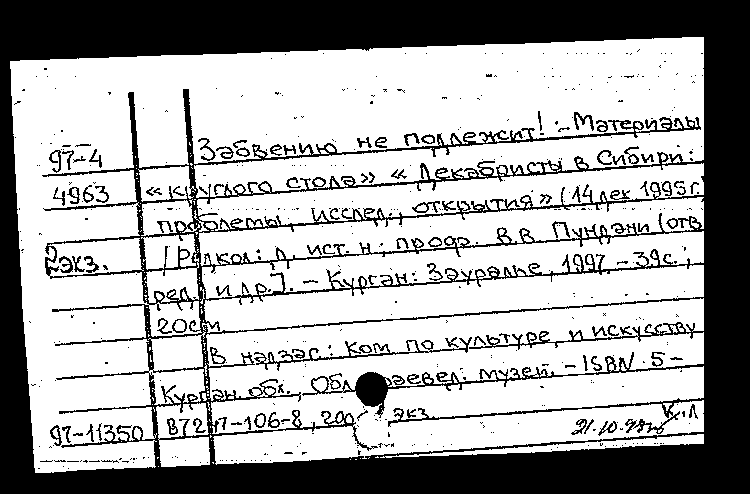 97-4 Забвению не подлежит! :-Материалы
4963 «круглого стола» «Декабристы в Сибири:
проблемы, исслед., открытия» (14 дек. 1995г.)
2экз. /[Редкол: д. ист. н., проф. В.В. Пундани (отв.
ред.) и др.]. - Курган: Зауралье, 1997. - 39с.;
20см.
В надзаг: Ком. по культуре и искусству
Курган. обл., Обл. краевед. музей. - ISBN 5-
97-11350 87247-106-8, 200 экз.
21.10.97г К.Л